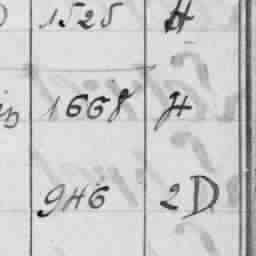 1525 H
1668 H
946 2D